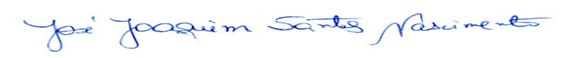 José Joaquim Santos Nascimento